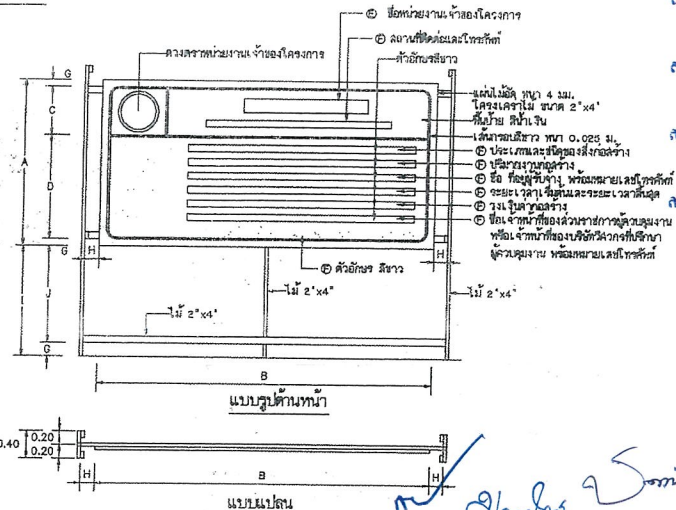 Ⓔ ชื่อหน่วยงานเจ้าของโครงการ
Ⓕ สถานที่ติดต่อและโทรศัพท์
ดวงตราหน่วยงานเจ้าของโครงการ
ตัวอักษรสีขาว
G
แผ่นไม้อัด หนา 4 มม.
โครงเคร่าไม้ ขนาด 2"x4"
C
พื้นป้าย สีน้ำเงิน
เส้นกรอบสีขาว หนา 0.025 ม.
A
Ⓕ ประเภทและชนิดของสิ่งก่อสร้าง
Ⓕ ปริมาณงานก่อสร้าง
D
Ⓕ ชื่อ ที่อยู่ผู้รับจ้าง พร้อมหมายเลขโทรศัพท์
Ⓕ ระยะเวลาเริ่มต้นและระยะเวลาสิ้นสุด
Ⓕ วงเงินค่าก่อสร้าง
Ⓕ ชื่อเจ้าหน้าที่ของส่วนราชการผู้ควบคุมงาน
หรือเจ้าหน้าที่ของบริษัทวิศวกรที่ปรึกษา
ผู้ควบคุมงาน พร้อมหมายเลขโทรศัพท์
G H H
Ⓕ ตัวอักษร สีขาว
ไม้ 2"x4"
ไม้ 2"x4"
ไม้ 2"x4"
I J
G
B
แบบรูปด้านหน้า
0.40 0.20
0.20
H B H
แบบแปลน